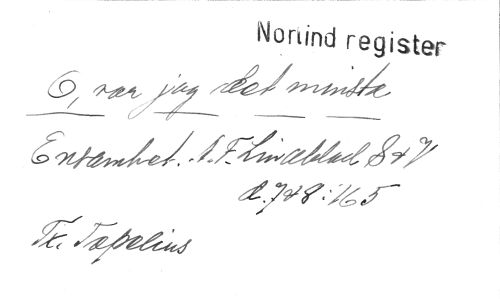 Norlind register
O, var jag det minsta
Ensamhet. A. F. Lindblad S & V
d. 7&8: 165
Tx. Topelius